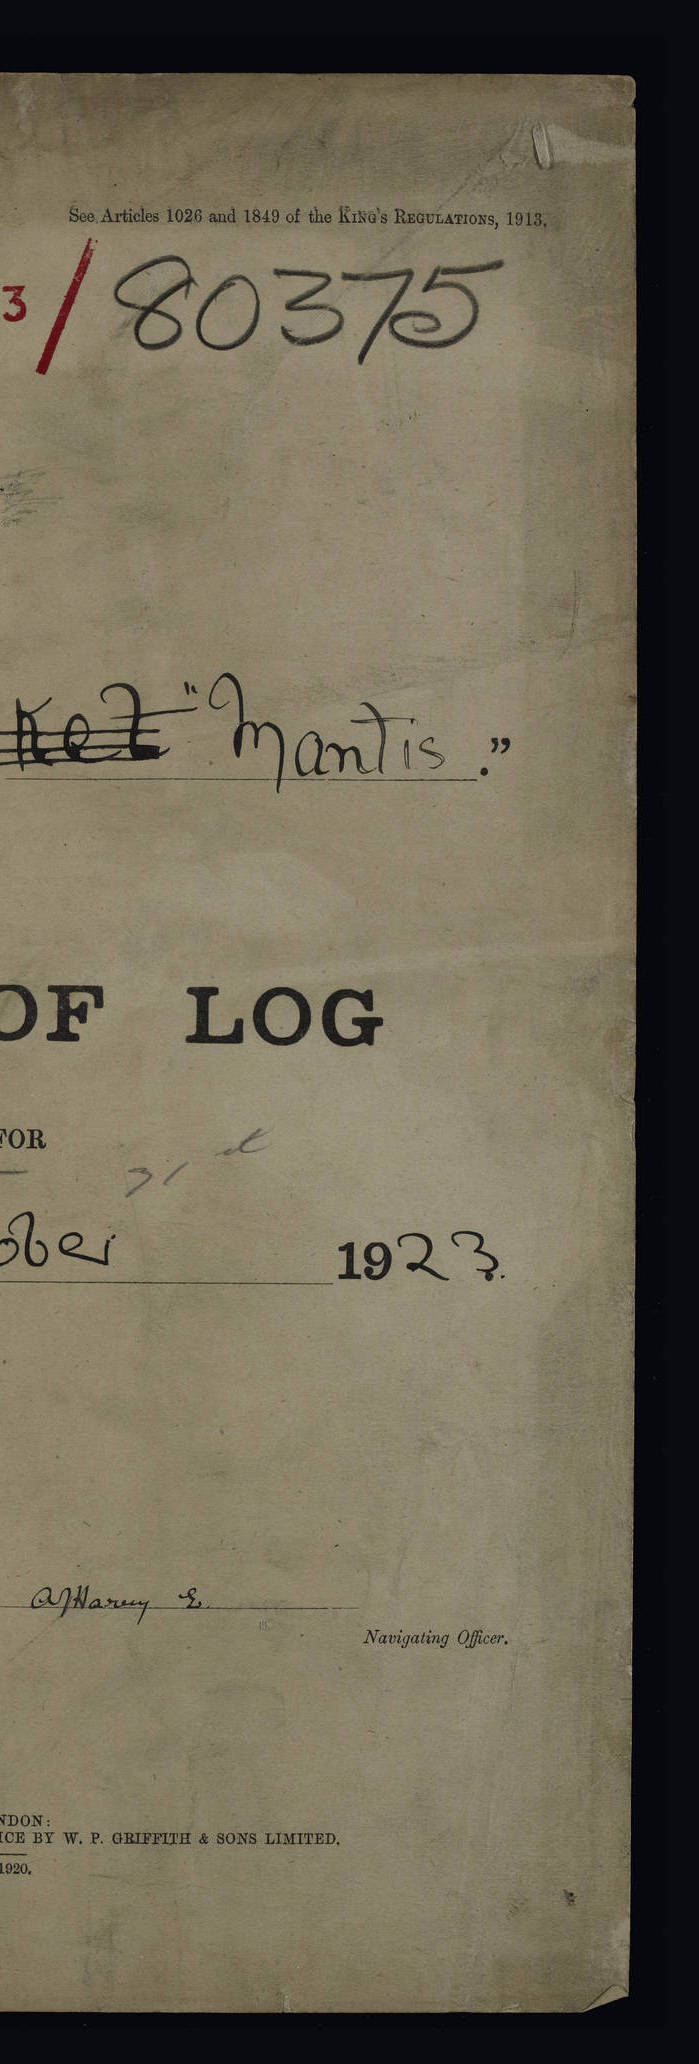 See Articles 1026 and 1849 of the KING'S REGULATIONS, 1913.
3/80375
ket "Mantis."
OF LOG
FOR
31st
ober 1923.
Navigating Officer.
NDON:
ICE BY W. P. GRIFFITH & SONS LIMITED.
1920.